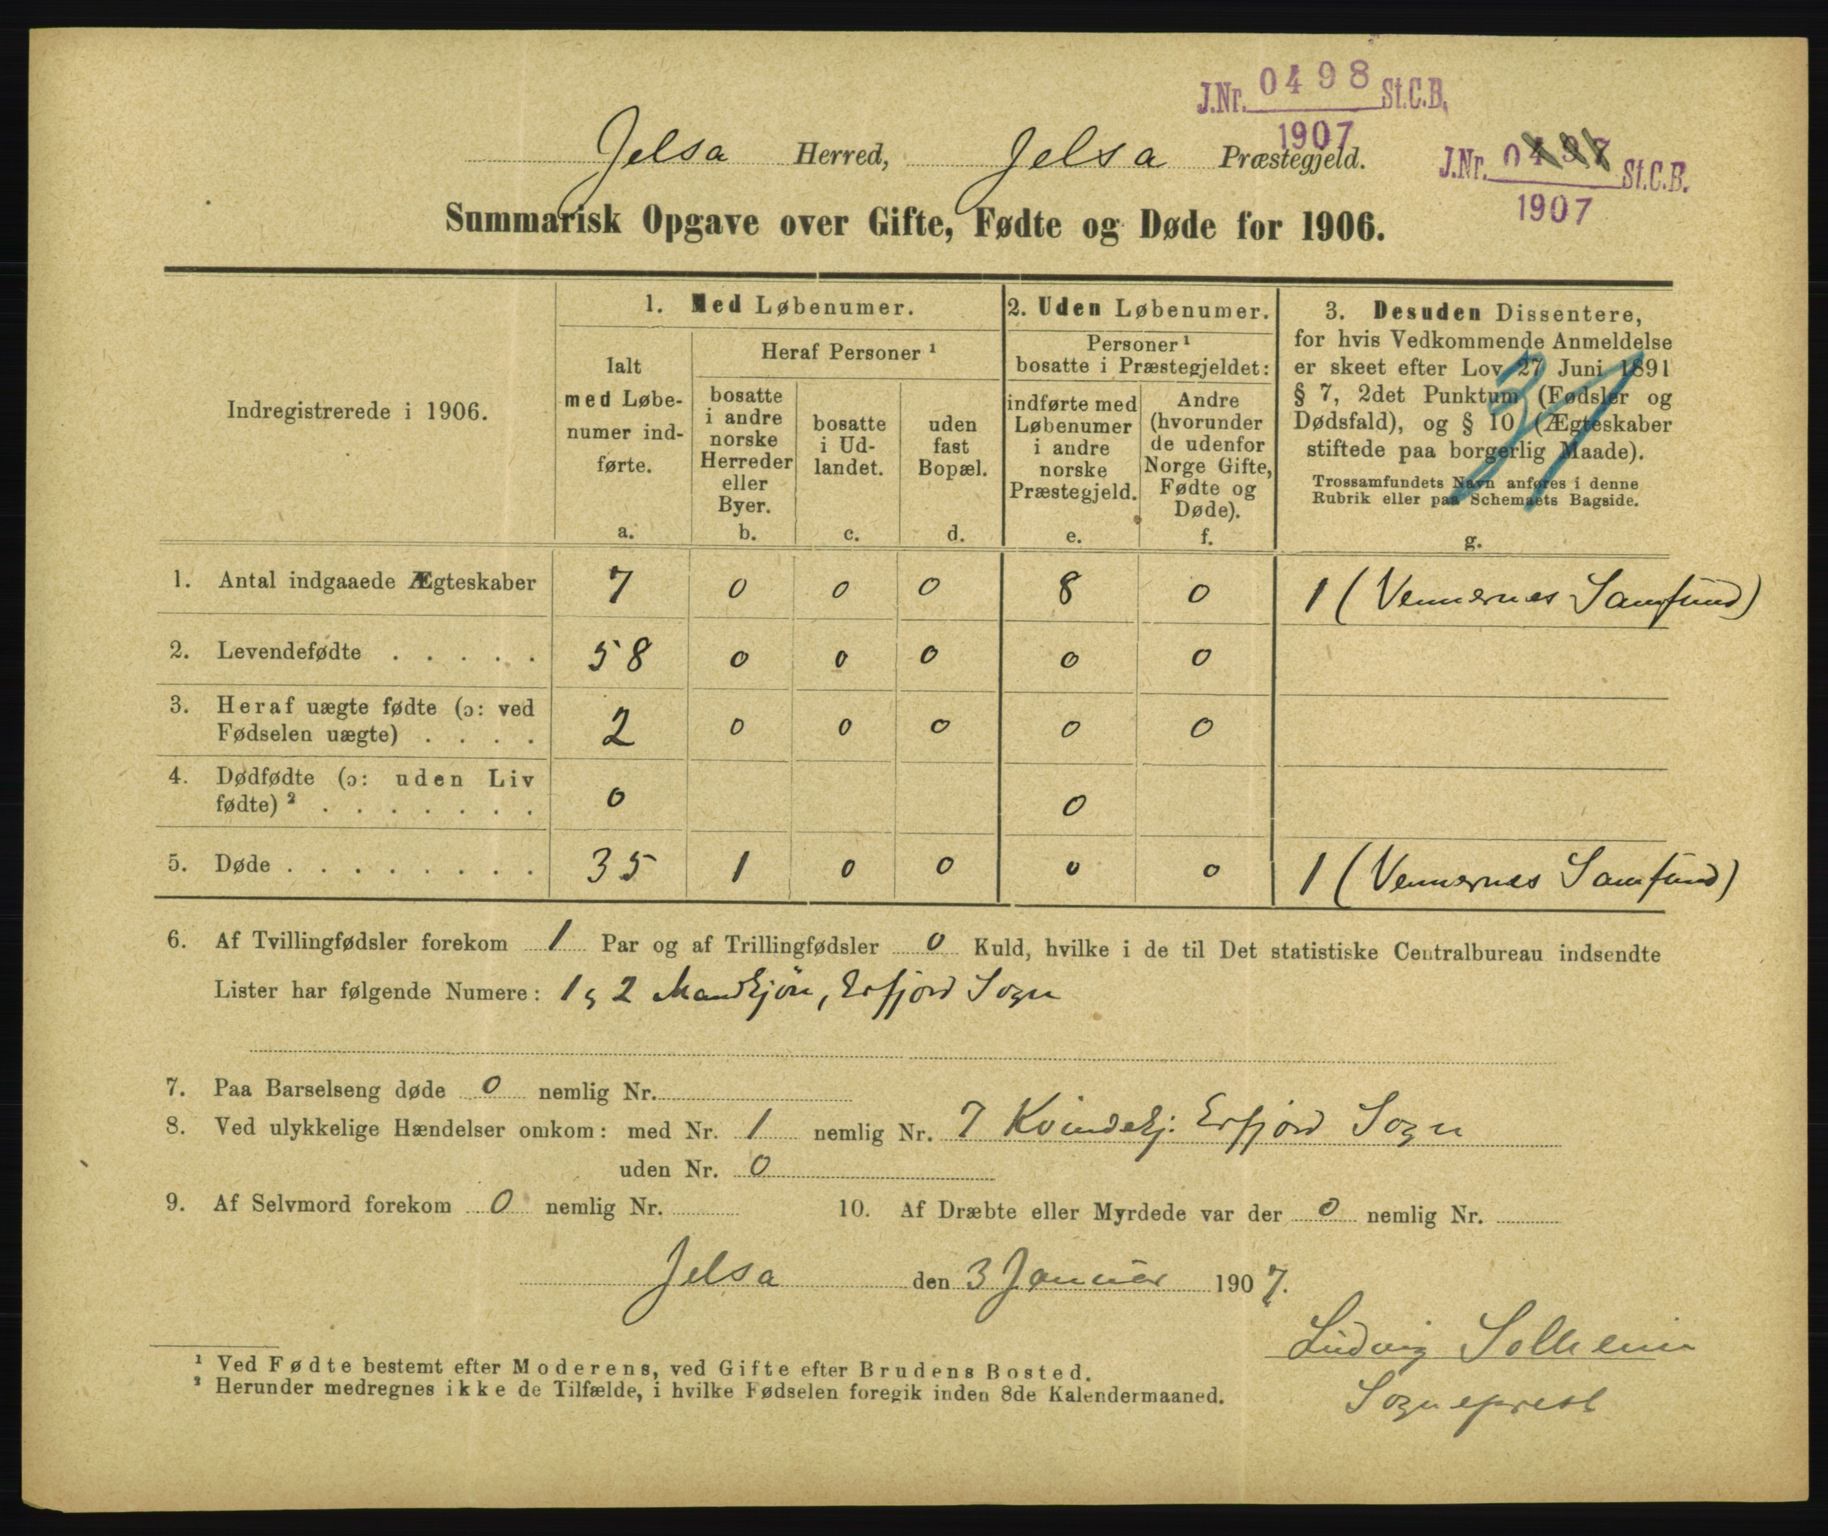 J.Nr. 0498 St.C.B.
1907
J.Nr. 0497 St.C.B.
1907
Jelsa Herred, Jelsa Præstegjeld.
Summarisk Opgave over Gifte, Fødte og Døde for 1906.
Indregistrerede i 1906.
1. Med Løbenumer.
Ialt
med Løbe-
numer ind-
førte.
a.
Heraf Personer ¹
bosatte
i andre
norske
Herreder
eller
Byer.
b.
bosatte
i Ud-
landet.
c.
uden
fast
Bopæl.
d.
2. Uden Løbenumer.
Personer ¹
bosatte i Præstegjeldet:
indførte med
Løbenumer
i andre
norske
Præstegjeld.
e.
Andre
(hvorunder
de udenfor
Norge Gifte,
Fødte og
Døde).
f.
3. Desuden Dissentere,
for hvis Vedkommende Anmeldelse
er skeet efter Lov 27 Juni 1891
§ 7, 2det Punktum (Fødsler og
Dødsfald), og § 10 (Ægteskaber
stiftede paa borgerlig Maade).
Trossamfundets Navn anføres i denne
Rubrik eller paa Schemaets Bagside.
g.
37
1. Antal indgaaede Ægteskaber 7 0 0 0 8 0 1 (Vennernes Samfund)
2. Levendefødte . . . . . 58 0 0 0 0 0
3. Heraf uægte fødte (ɔ: ved
Fødselen uægte) . . . . 2 0 0 0 0 0
4. Dødfødte (ɔ: uden Liv
fødte) ² . . . . . . . 0 0
5. Døde . . . . . . . . 35 1 0 0 0 0 1 (Vennernes Samfund)
6. Af Tvillingfødsler forekom 1 Par og af Trillingfødsler 0 Kuld, hvilke i de til Det statistiske Centralbureau indsendte
Lister har følgende Numere: 1 & 2 Mandkjøn, Erfjord Sogn
7. Paa Barselseng døde 0 nemlig Nr.
8. Ved ulykkelige Hændelser omkom: med Nr. 1 nemlig Nr. 7 Kvindekj. Erfjord Sogn
uden Nr. 0
9. Af Selvmord forekom 0 nemlig Nr. 10. Af Dræbte eller Myrdede var der 0 nemlig Nr.
Jelsa den 3 Januar 1907.
Ludvig Solheim
Sogneprest
¹ Ved Fødte bestemt efter Moderens, ved Gifte efter Brudens Bosted.
² Herunder medregnes ikke de Tilfælde, i hvilke Fødselen foregik inden 8de Kalendermaaned.